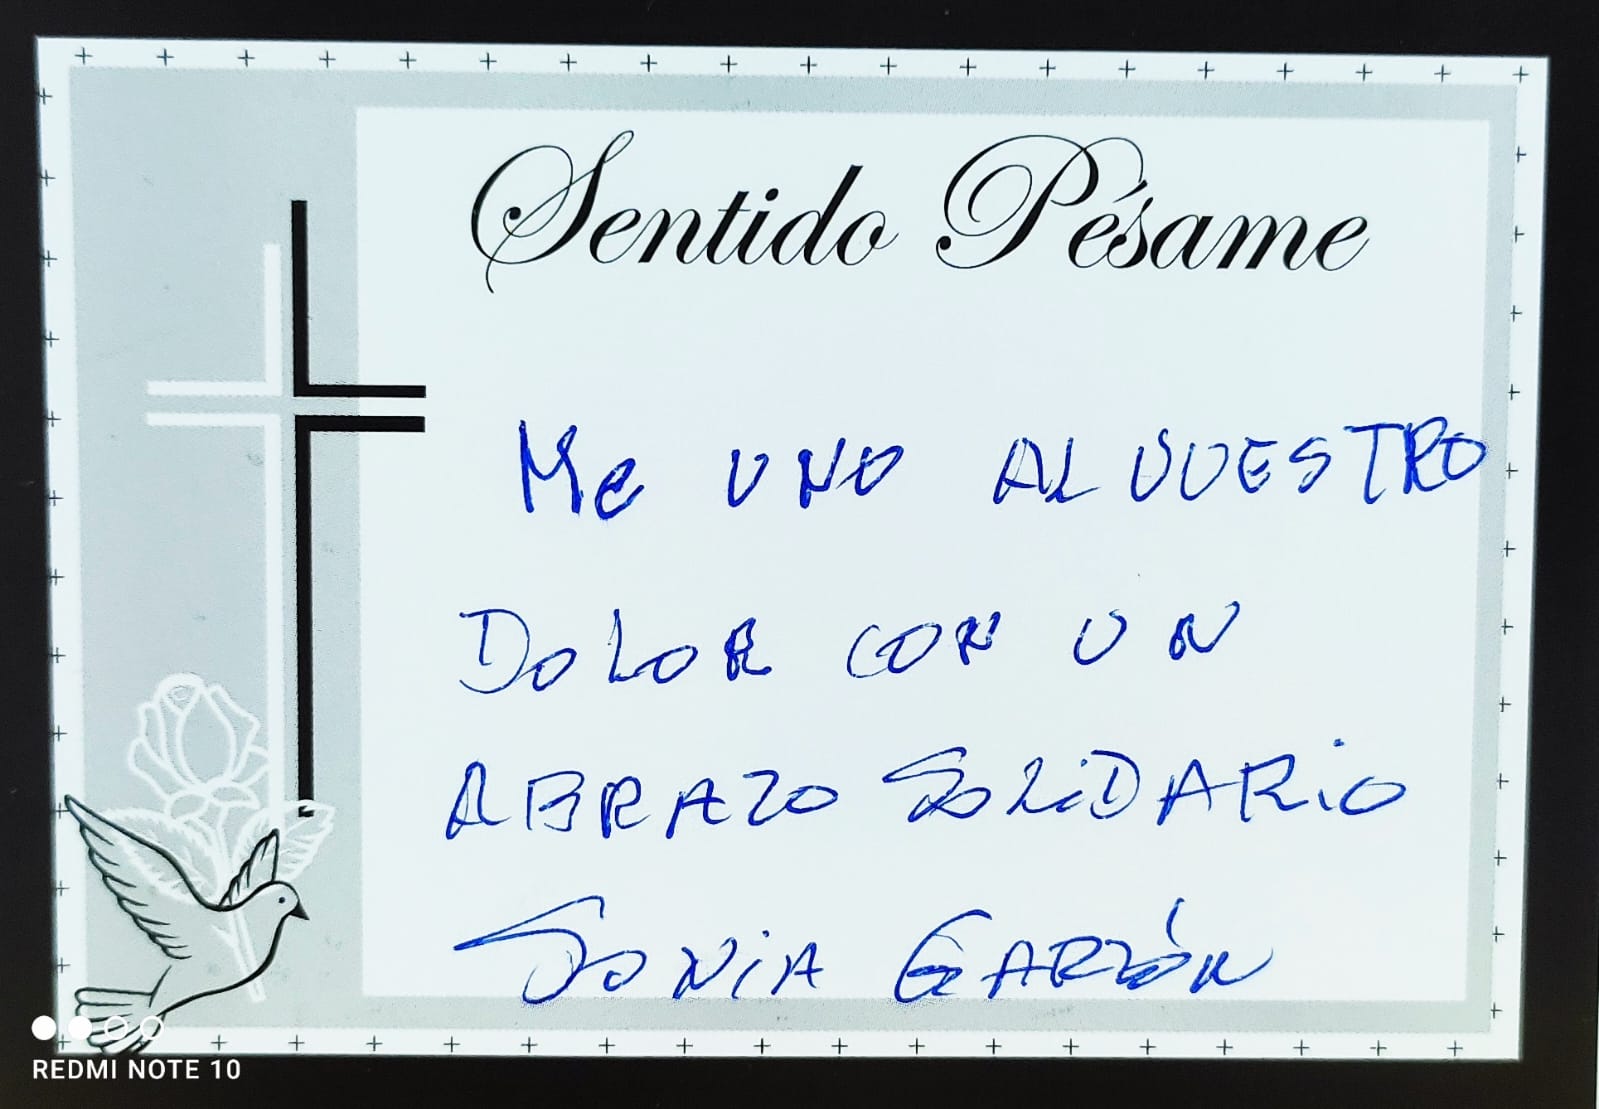 Sentido Pésame
Me UNO AL VUESTRO
DOLOR CON UN
ABRAZO SOLiDARiO
SONiA GARZÓN
REDMI NOTE 10